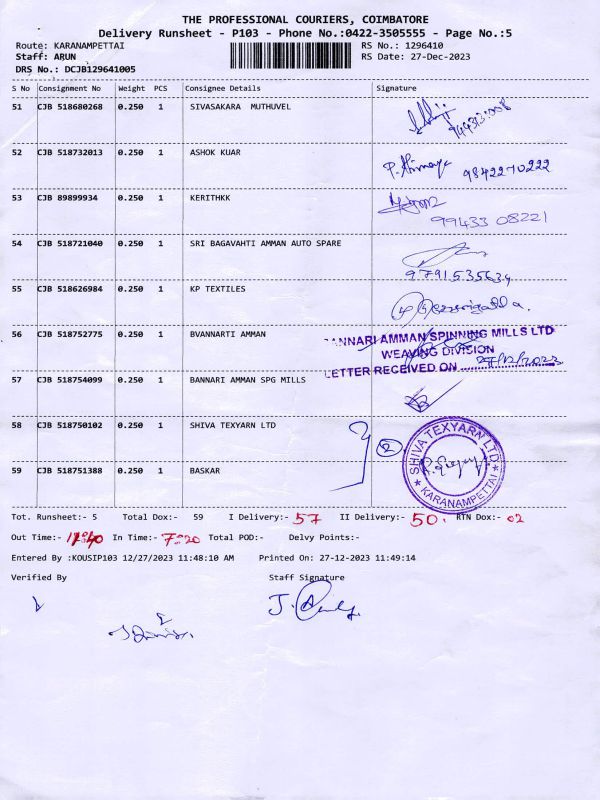 THE PROFESSIONAL COURIERS, COIMBATORE
Delivery Runsheet - P103 - Phone No.:0422-3505555 - Page No.:5
Route: KARANAMPETTAI RS No.: 1296410
Staff: ARUN RS Date: 27-Dec-2023
DRS No.: DCJB129641005
S No Consignment No Weight PCS Consignee Details Signature
51 CJB 518680268 0.250 1 SIVASAKARA MUTHUVEL
52 CJB 518732013 0.250 1 ASHOK KUAR
9842270222
53 CJB 89899934 0.250 1 KERITHKK
99433 08221
54 CJB 518721040 0.250 1 SRI BAGAVAHTI AMMAN AUTO SPARE
9791535634
55 CJB 518626984 0.250 1 KP TEXTILES
56 CJB 518752775 0.250 1 BVANNARTI AMMAN
BANNARI AMMAN SPINNING MILLS LTD
WEAVING DIVISION
LETTER RECEIVED ON
57 CJB 518754099 0.250 1 BANNARI AMMAN SPG MILLS
58 CJB 518750102 0.250 1 SHIVA TEXYARN LTD
2
SHIVA TEXYARN LTD
KARANAMPETTAI
59 CJB 518751388 0.250 1 BASKAR
Tot. Runsheet:- 5 Total Dox:- 59 I Delivery:- 57 II Delivery:- 50. RTN Dox:- 02
Out Time:- In Time:- 7:20 Total POD:- Delvy Points:-
Entered By :KOUSIP103 12/27/2023 11:48:10 AM Printed On: 27-12-2023 11:49:14
Verified By Staff Signature